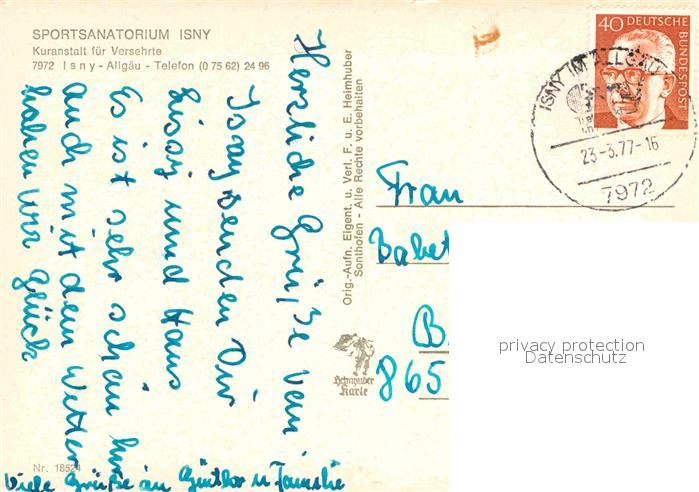 SPORTSANATORIUM ISNY
Kuranstalt für Versehrte
7972 Isny - Allgäu - Telefon (0 75 62) 24 96
Herzliche Grüße von
Isny senden Dir
Sissy und Hans
Es ist sehr schön hier
auch mit dem Wetter
haben wir Glück
Viele Grüße an Günther u Familie
Nr. 18524
Orig.-Aufn. Eigent. u. Verl. F. u. E. Heimhuber
Sonthofen - Alle Rechte vorbehalten
Heimhuber
Karte
40 DEUTSCHE
BUNDESPOST
ISNY IM ALLGÄU
23-3.77-16
7972
Frau
Babet
B.
865
privacy protection
Datenschutz